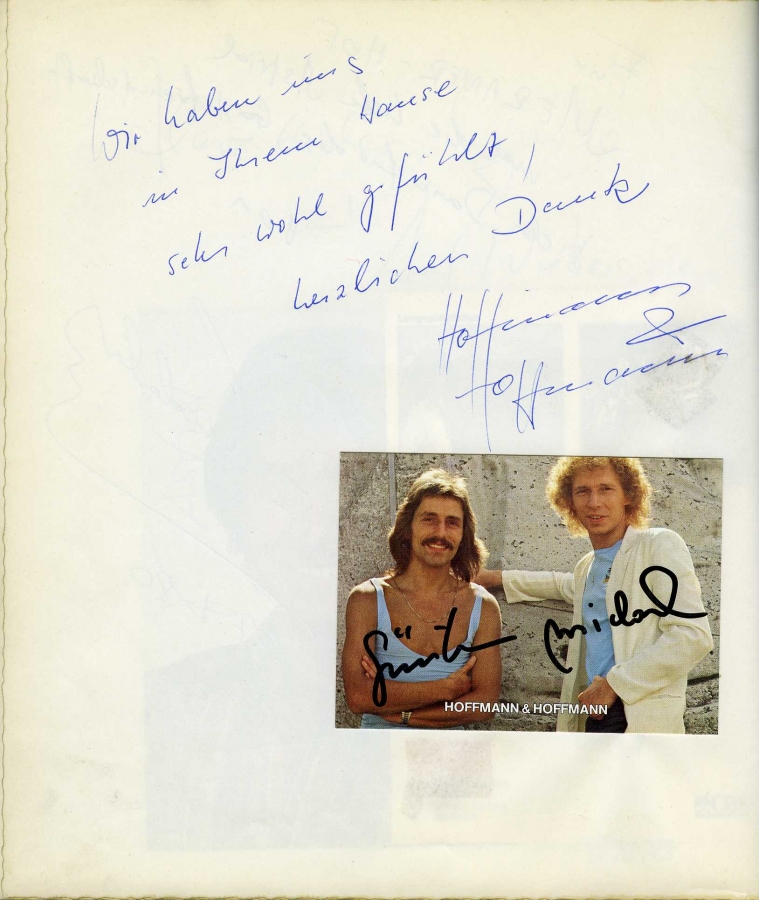 Wir haben uns
in Ihrem Hause
sehr wohl gefühlt,
herzlichen Dank
Hoffmann
&
Hoffmann
Günter Michael
HOFFMANN & HOFFMANN